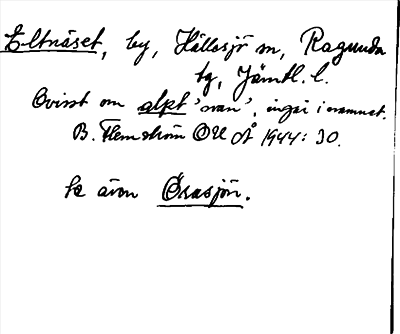 Eltnäset, by, Hällesjö sn, Ragunda
tg, Jämtl. l.
Ovisst om alpt 'svan', ingår i ornamnet.
B. Flemström OUÅ 1944: 30.
Se även Örasjön.